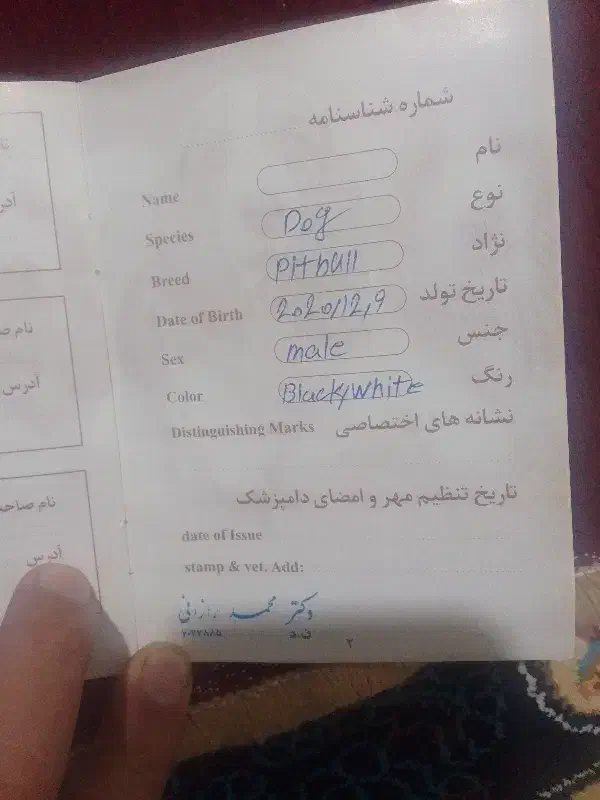 شماره شناسنامه
Name نام
Species Dog نوع
Breed Pitbull نژاد
Date of Birth 2020/12,9 تاریخ تولد
Sex male جنس
Color Black/white رنگ
Distinguishing Marks نشانه های اختصاصی
تاریخ تنظیم مهر و امضای دامپزشک
date of Issue
stamp & vet. Add:
دکتر محمد
۲
آدرس
نام صاحب
آدرس
نام صاحب
آدرس